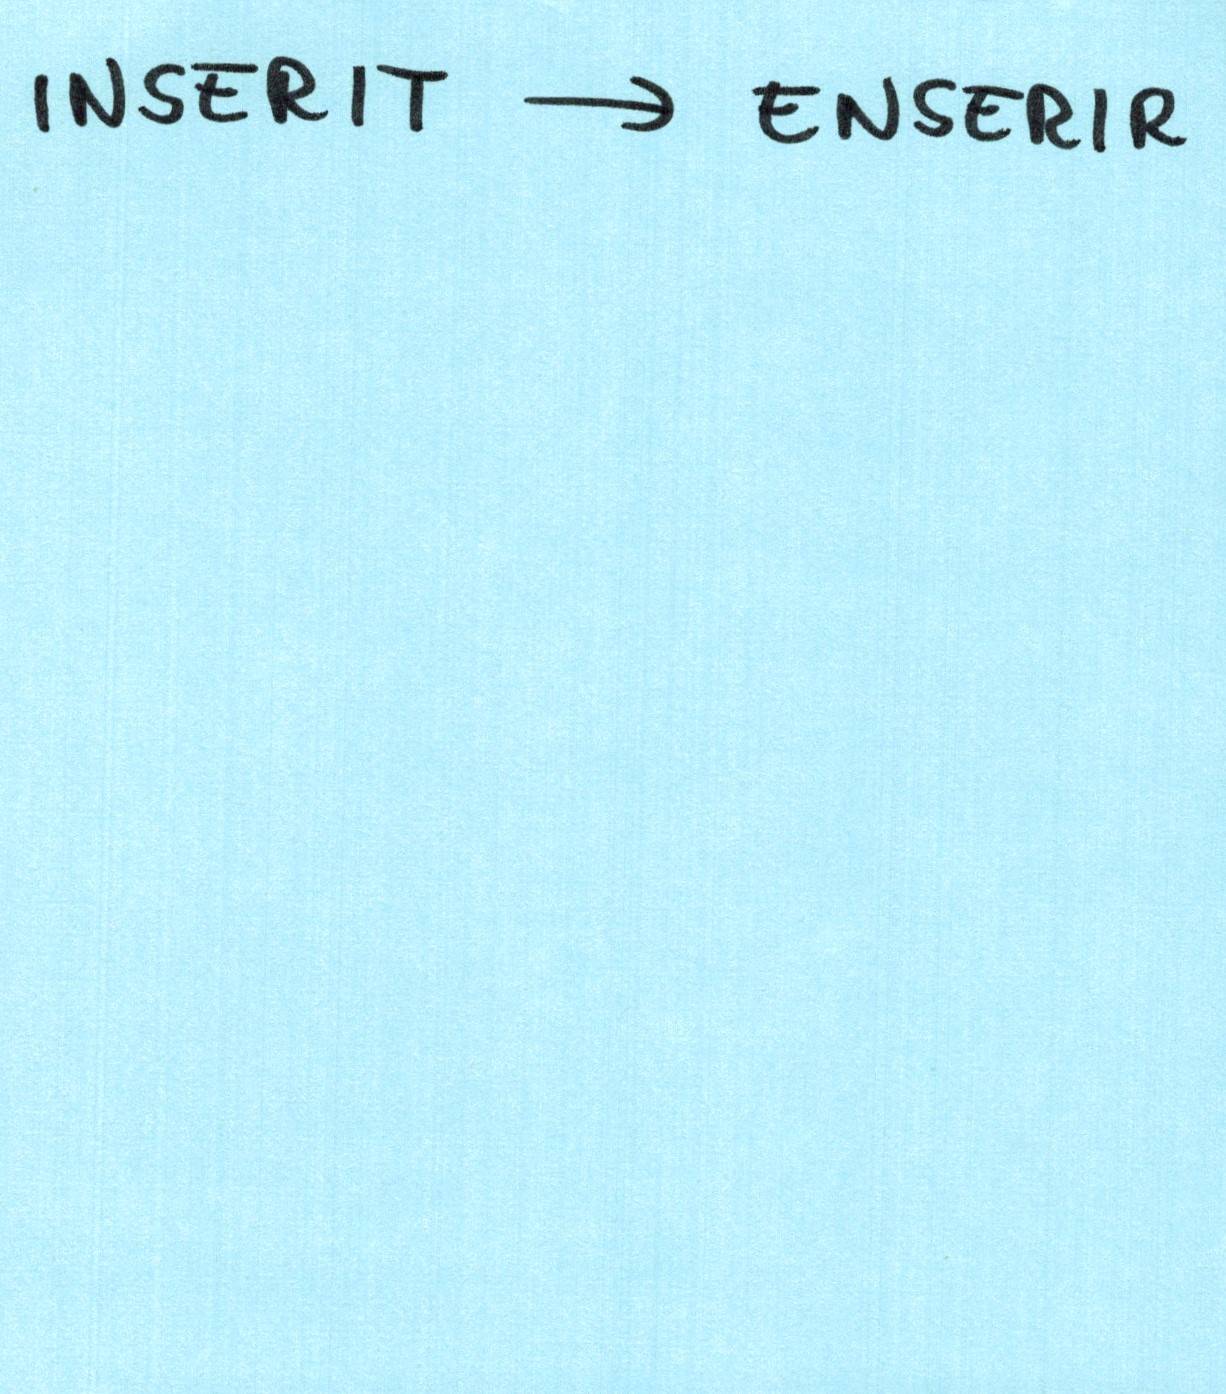 INSERIT → ENSERIR